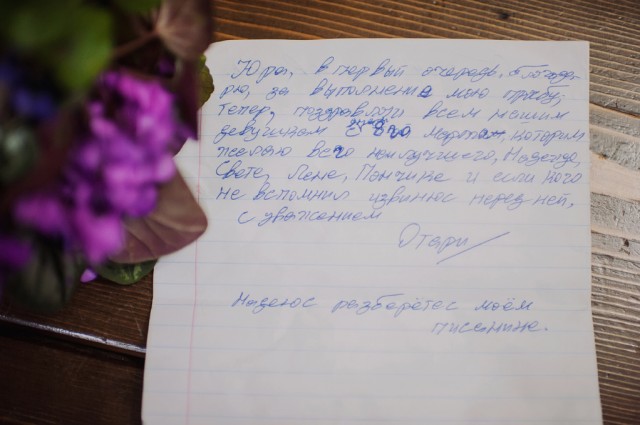 Юра, в первый очередь, благода-
рю, за выполнение мою прозбу,
Тепер, поздравляю всем нашим
девушкам с днём 8го мартом, которим
желаю всего наилучшего, Надежда,
Свете, Лене, Панчике и если кого
не вспомнил извинюс перед ней,
с уважением
Отари
Надеюс разберётес моём
писанине.